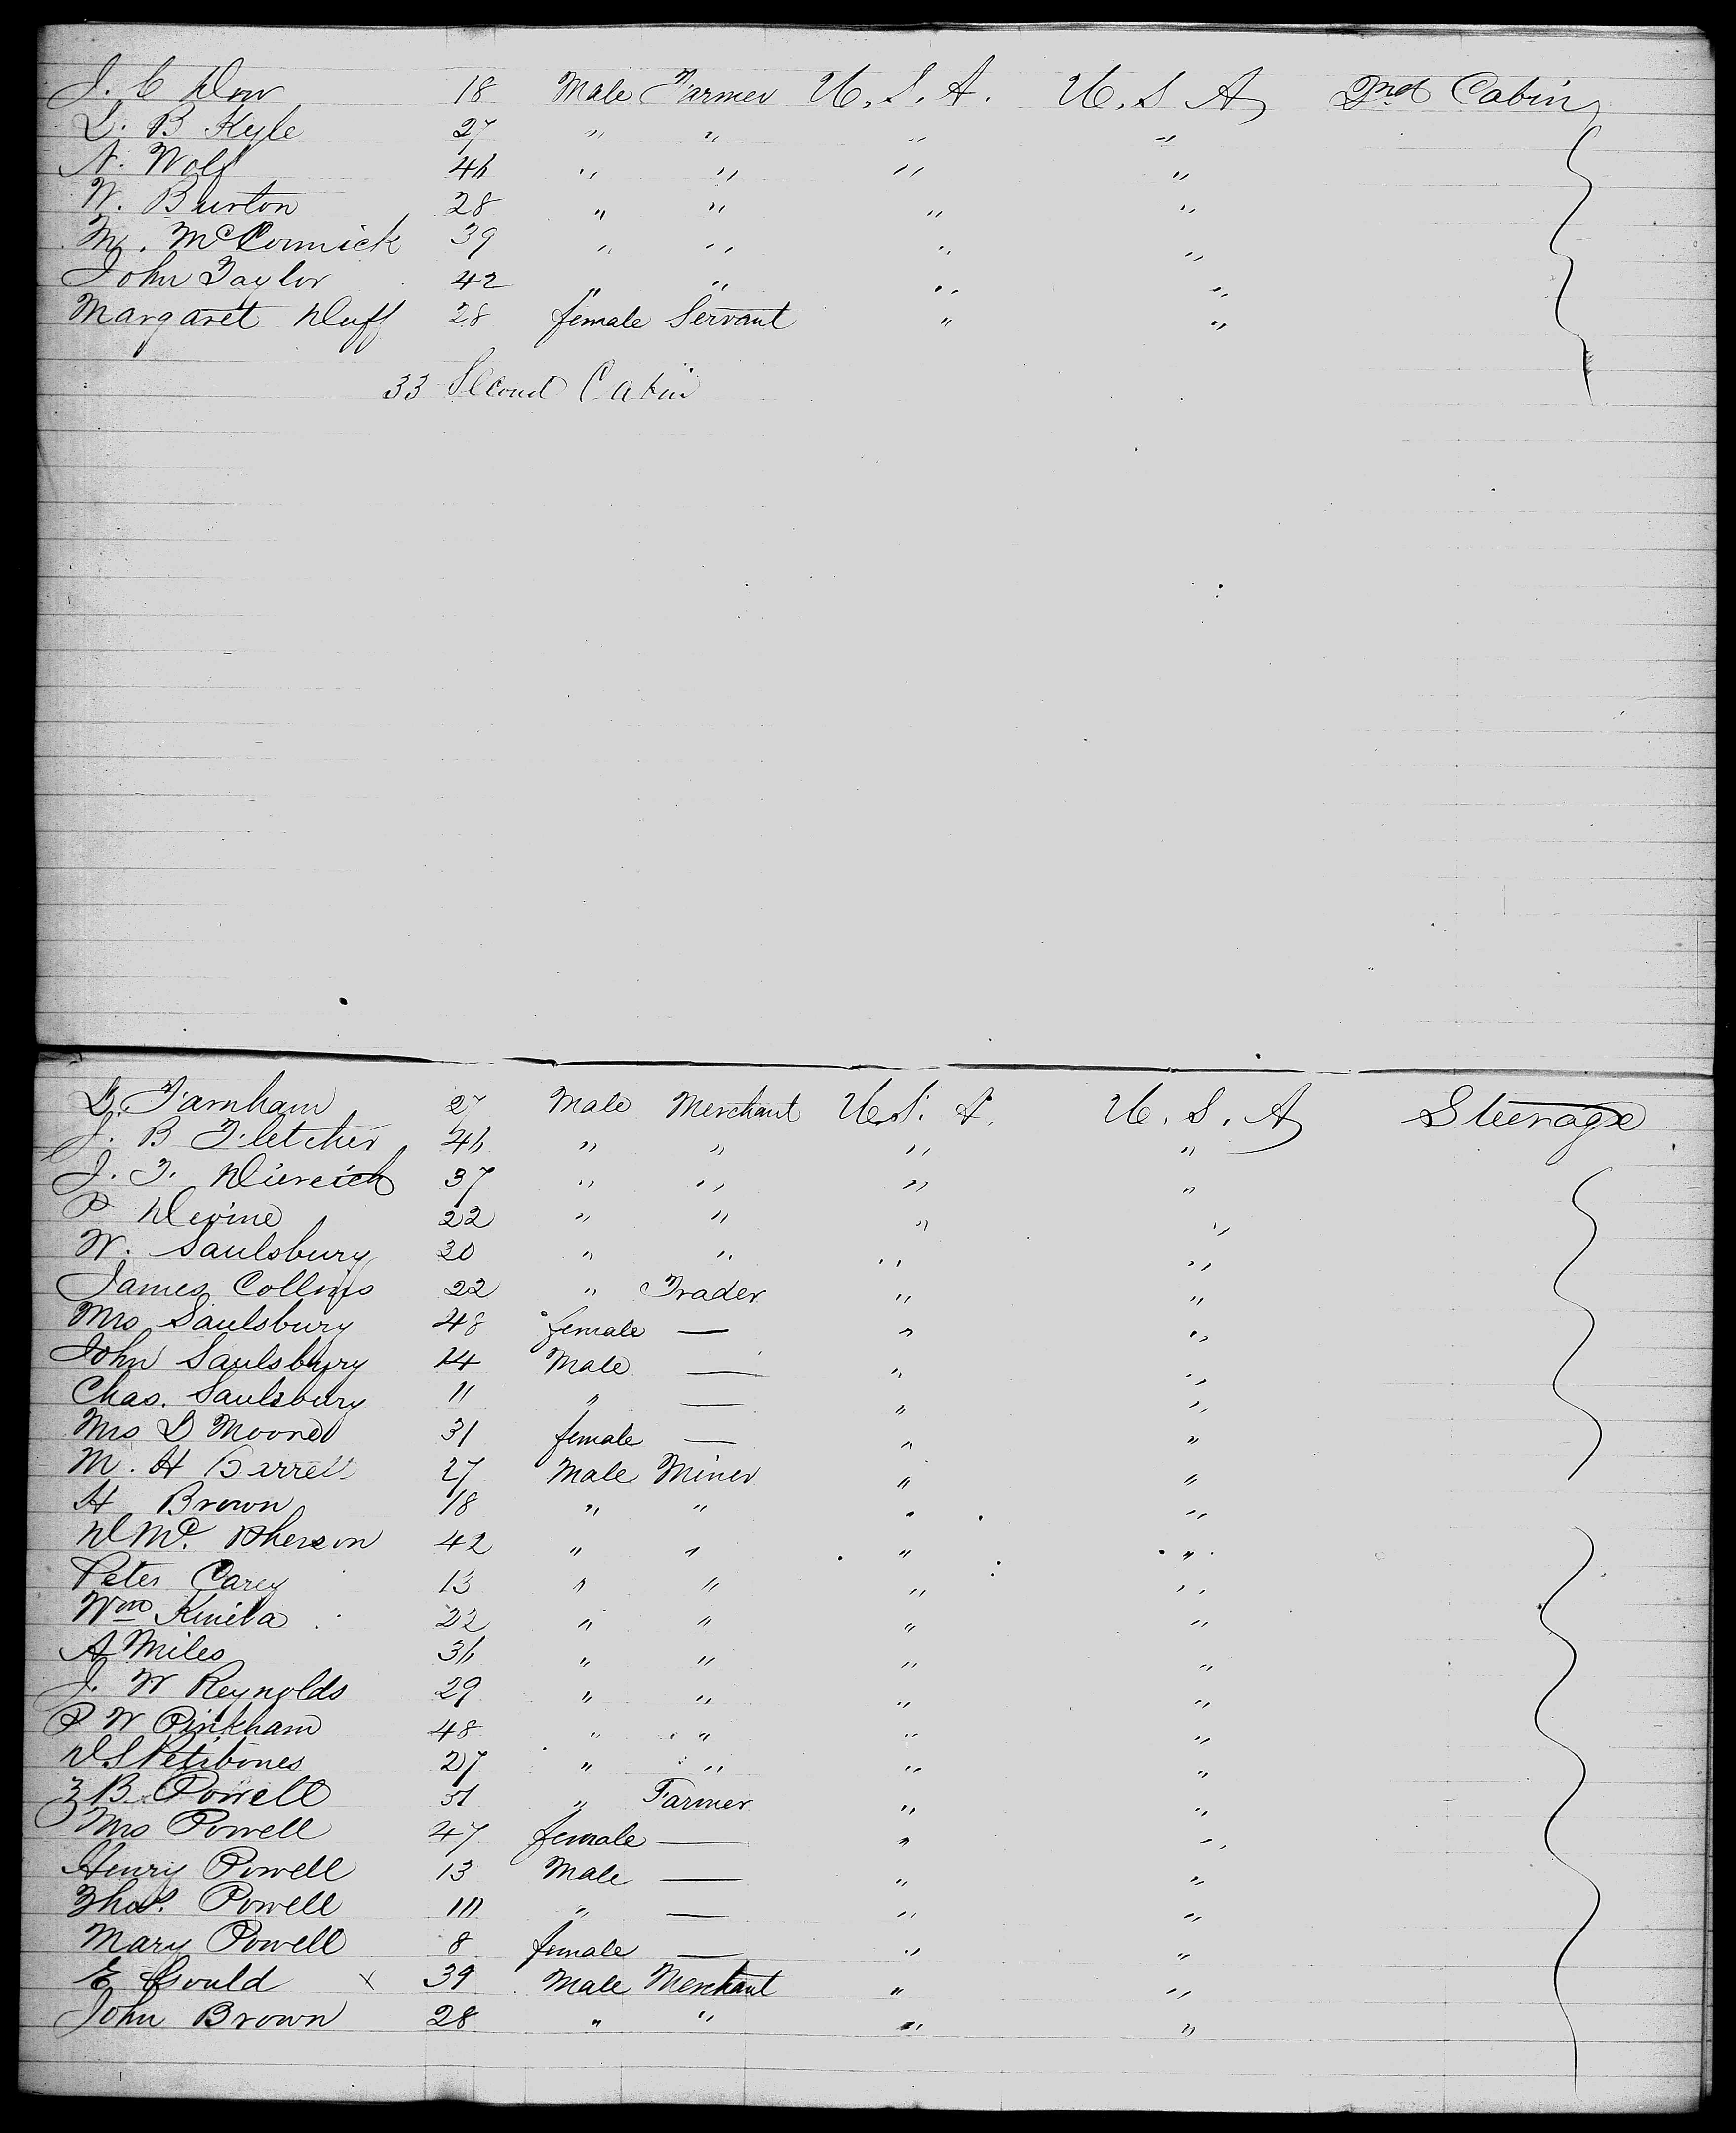 J. C Dow 18 Male Farmer U. S. A. U. S A 2nd Cabin
L. B Kyle 27 " " " "
N. Wolf 46 " " " "
W. Burton 28 " " " "
M. McCormick 39 " " " "
John Taylor 42 " " " "
Margaret Duff 28 female Servant " "
33 Second Cabin
D. Farnham 27 Male Merchant U. S. A. U. S. A Steerage
J. B Fletcher 46 " " " "
J. F. 37 " " " "
P Devine 22 " " " "
W. Saulsbury 30 " " " "
James Collins 22 " Trader " "
Mrs Saulsbury 48 female — " "
John Saulsbury 14 Male — " "
Chas. Saulsbury 11 " — " "
Mrs D Moore 31 female — " "
M. H Barrett 27 Male Miner " "
H Brown 18 " " " "
D Mc. Pherson 42 " " " "
Peter Carey 13 " " " "
Wm 22 " " " "
A Miles 36 " " " "
J. W Reynolds 29 " " " "
P W Pinkham 48 " " " "
D. S Petibones 27 " " " "
Z B Powell 51 " Farmer " "
Mrs Powell 47 female — " "
Henry Powell 13 Male — " "
Thos. Powell 10 " — " "
Mary Powell 8 female — " "
E Gould x 39 Male Merchant " "
John Brown 28 " " " "